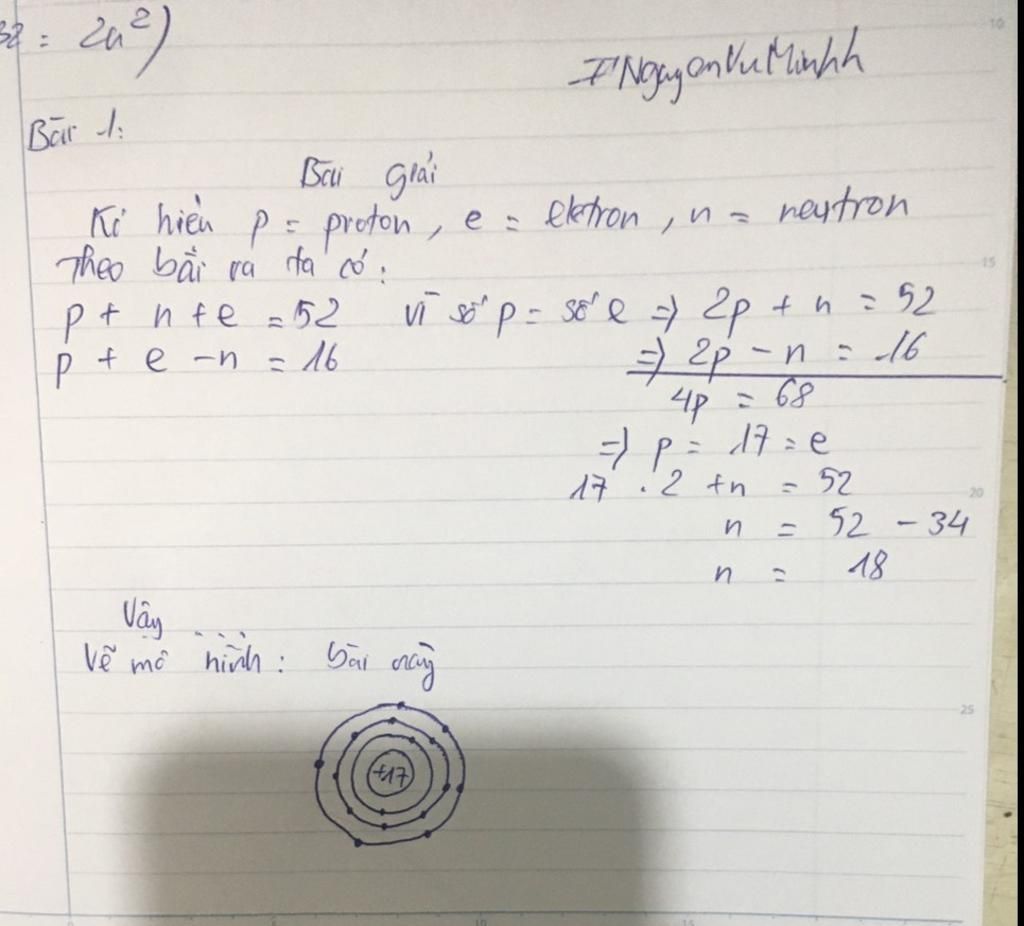 32 = 2n²)
#NguyenVuMinhh
Bài 1:
Bài giải
Kí hiệu p = proton, e = elktron, n = neutron
Theo bài ra ta có:
p + n + e = 52 vì số p = số e => 2p + n = 52
p + e - n = 16 => 2p - n = 16
4p = 68
=> p = 17 = e
17 . 2 + n = 52
n = 52 - 34
n = 18
Vậy ....
Vẽ mô hình: bài này
+17
10
15
20
25